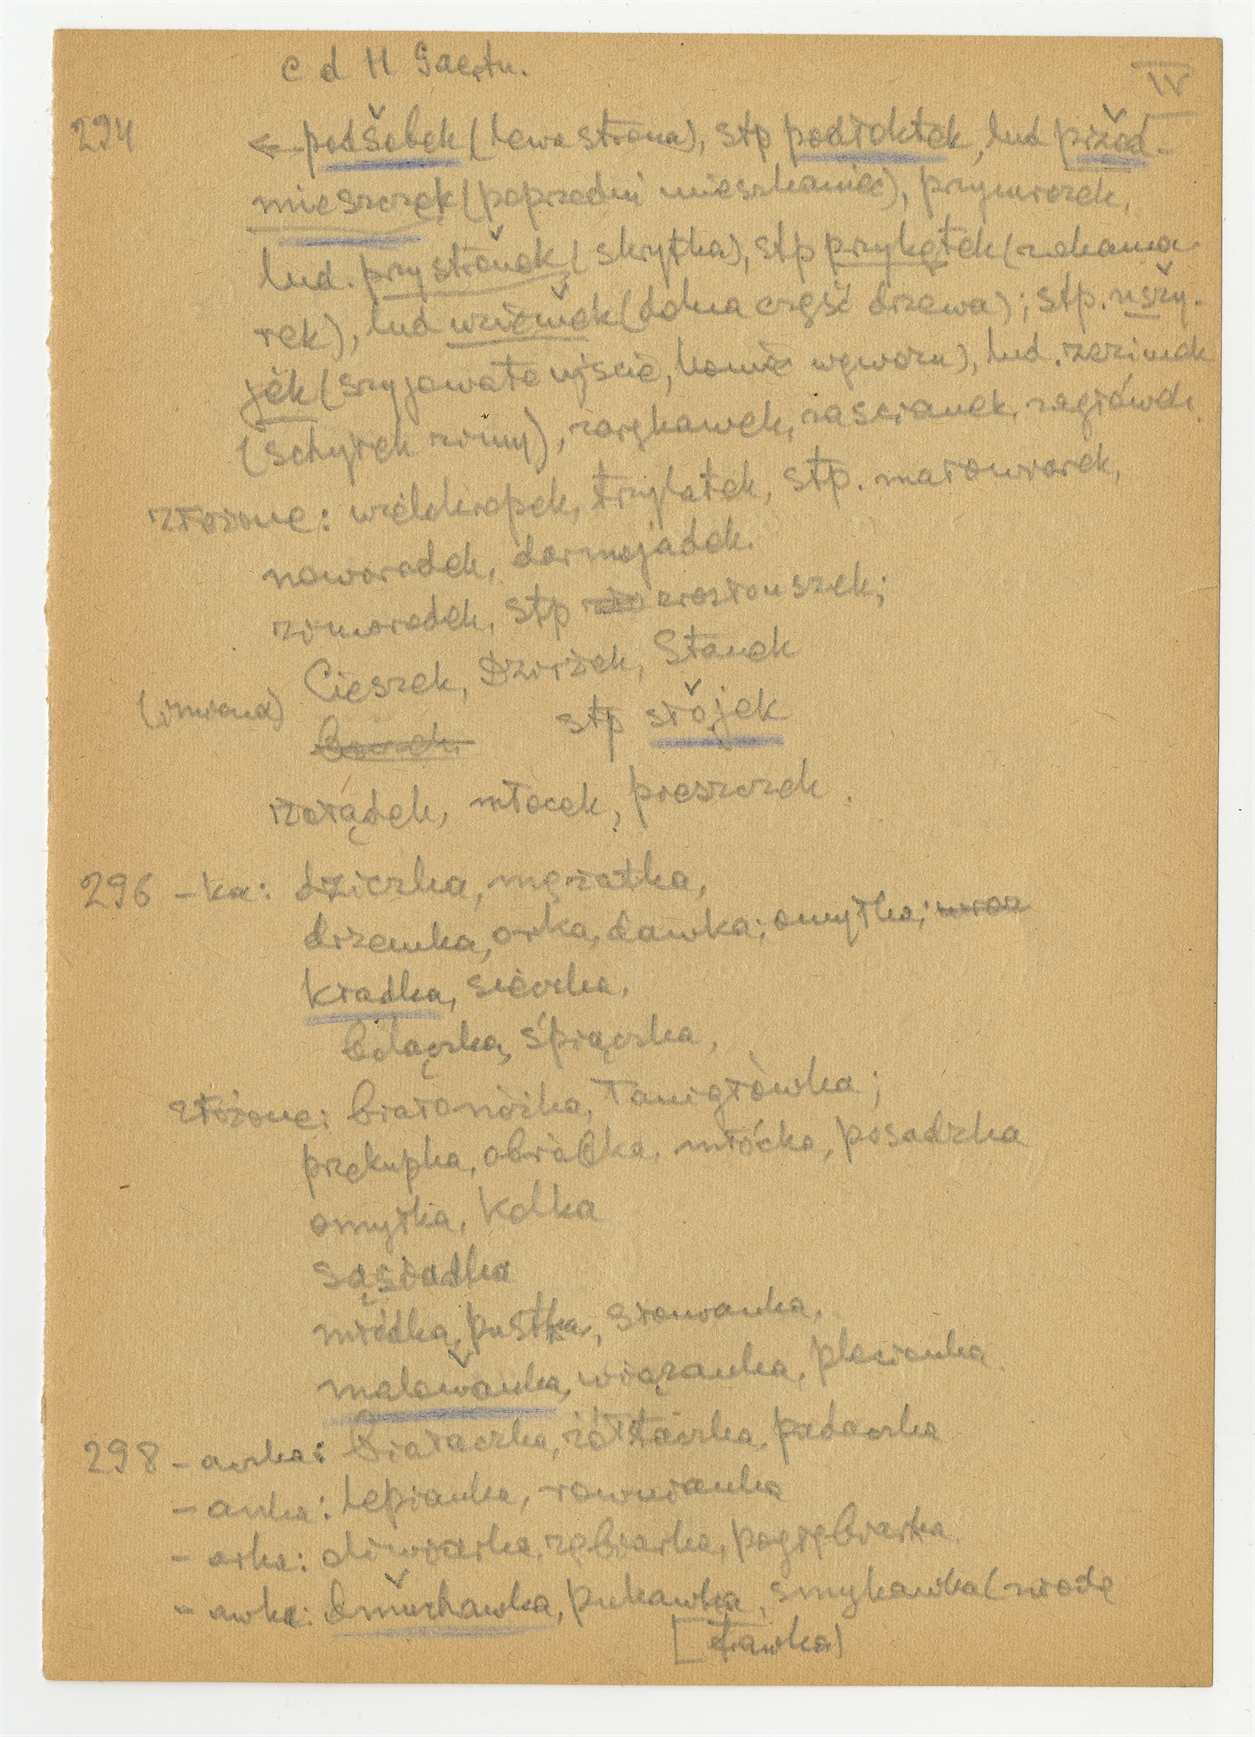 c d H Gaertn.
IV
294 ← podšobek (lewa strona), stp podłoktek, lud przed-
mieszczek (poprzedni mieszkaniec), przymrozek,
lud. przystronek (skrytka), stp przykątek (zakama-
rek), lud wziemek (dolna część drzewa); stp. uszy-
jek (szyjowate ujście, koniec wąwozu), lud. zezimek
(schyłek zimy), zarękawek, zascianek, zagłówek.
złożone: wielokropek, trzylatek, stp. małowrorek,
noworodek, darmojadek.
zimorodek, stp złotouszek;
Cieszek, Dzirżek, Stanek
(imiona) stp stojek
rzołądek, młocek, pieszczek.
296 -ka: dziczka, mężatka,
drzemka, orka, dawka; omyłka;
kradka, sieczka,
bolączka, śpiączka,
złożone: białonóżka, łamigłówka;
przekupka, obrączka, młócka, posadzka
omyłka, kolka
sąsiadka
młódka, pustka, słowianka,
malowanka, wiązanka, plecionka
298 -aczka: białaczka, żółtaczka, padaczka
-anka: lepianka, rownianka
-arka: oliwiarka, zębiarka, pogrębiarka.
-awka: dmuchawka, pukawka, smykawka (młode
[trawka)